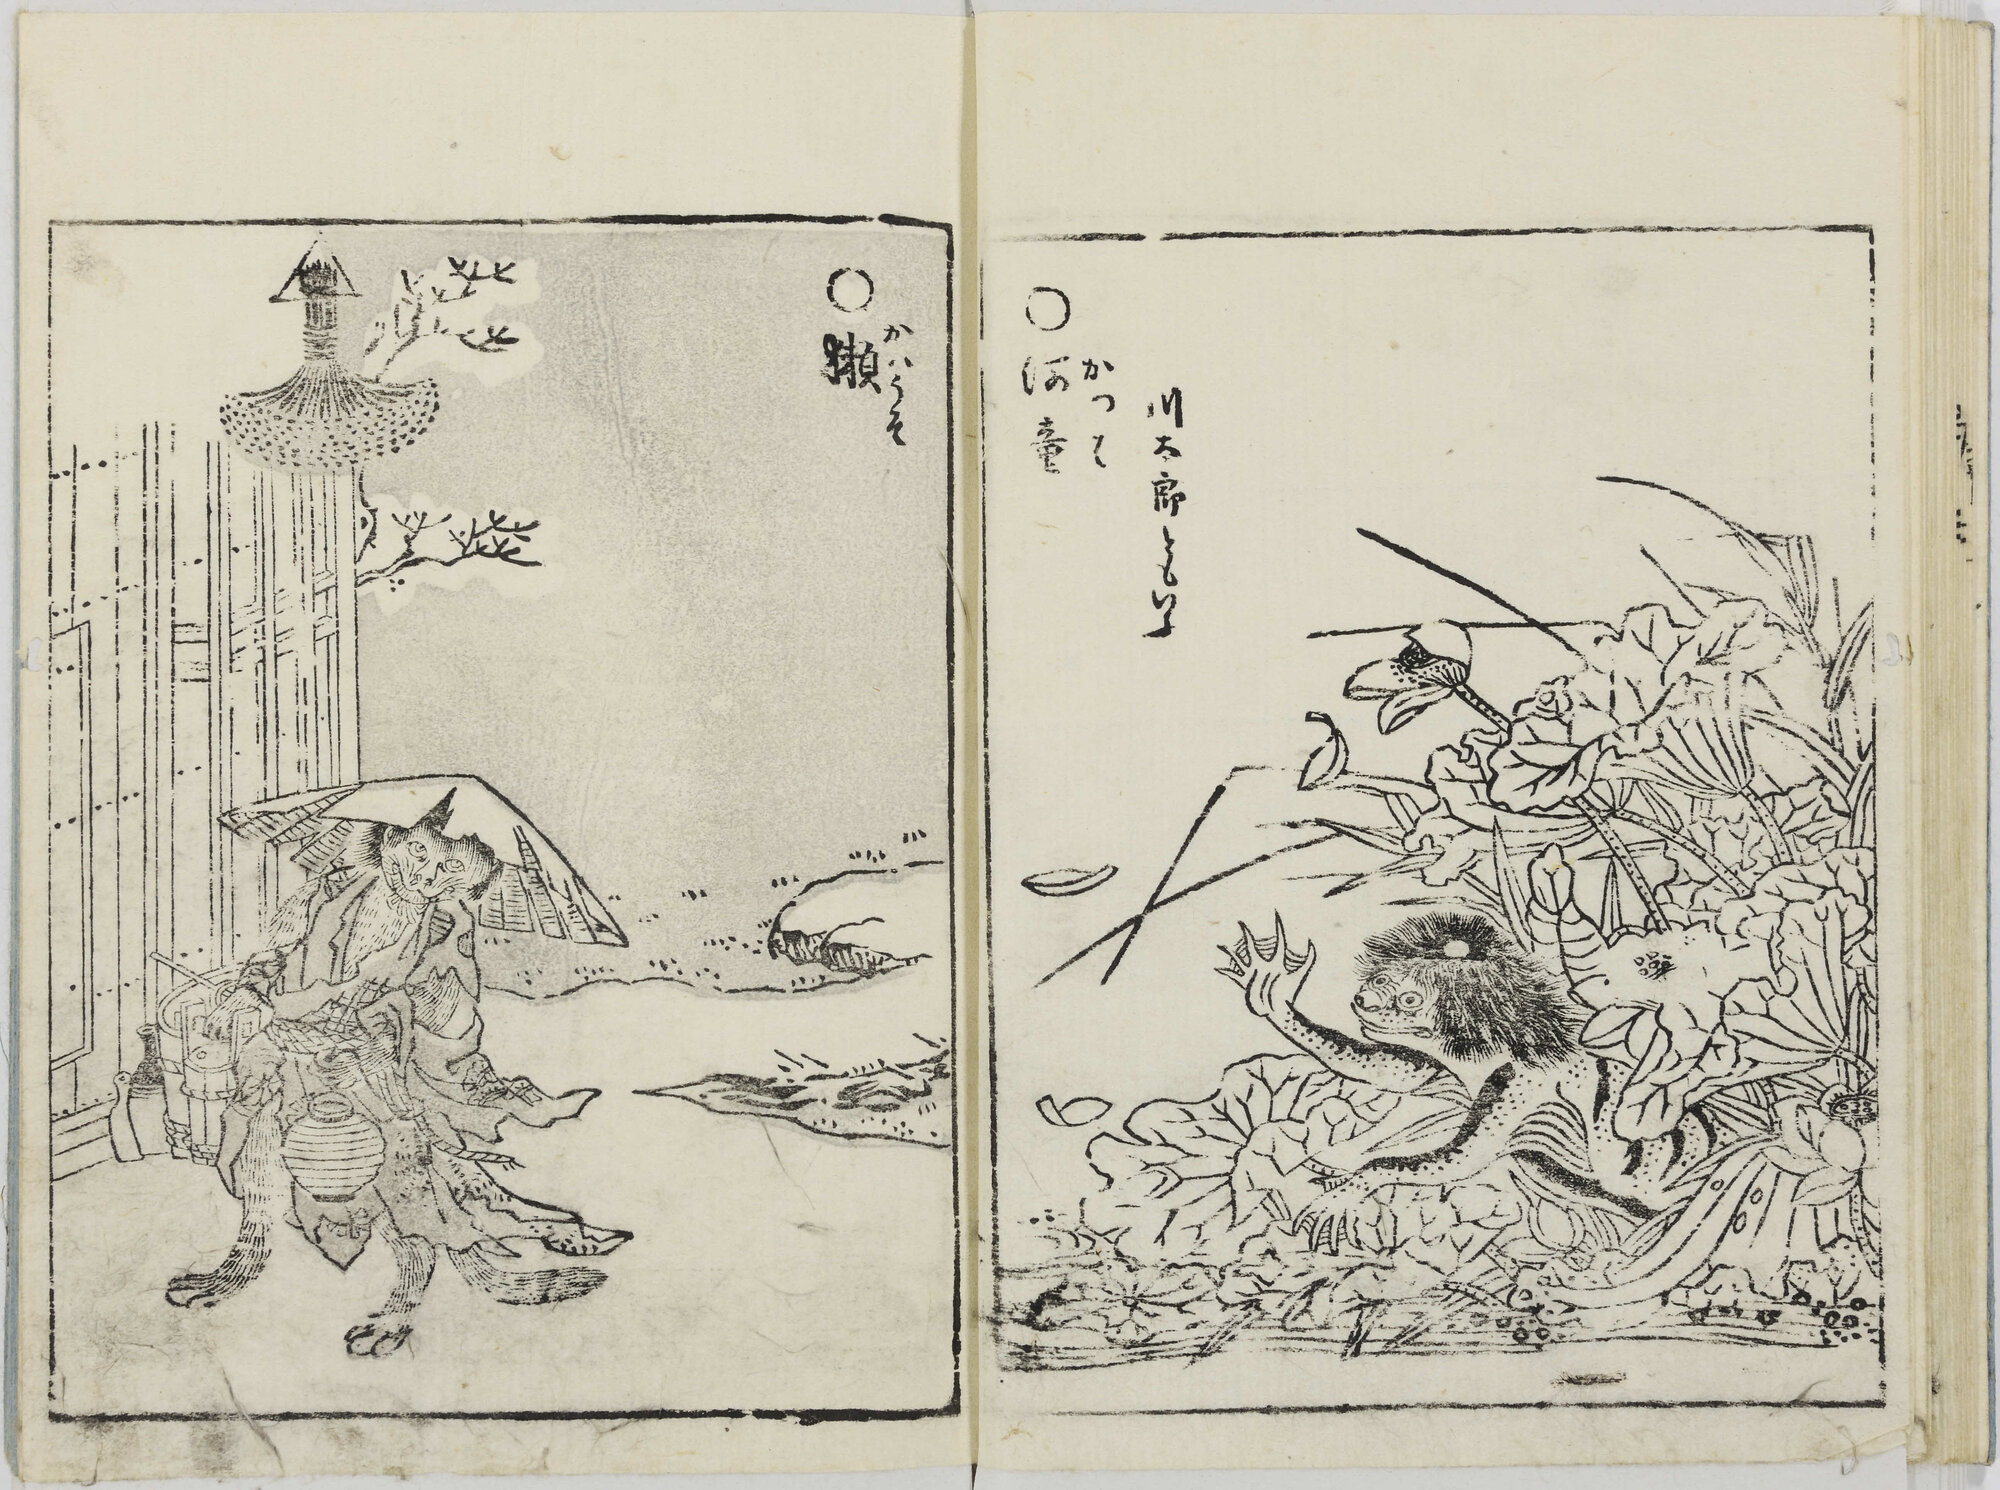 川太郎ともいふ
かつは
○河童
かはうそ
○獺